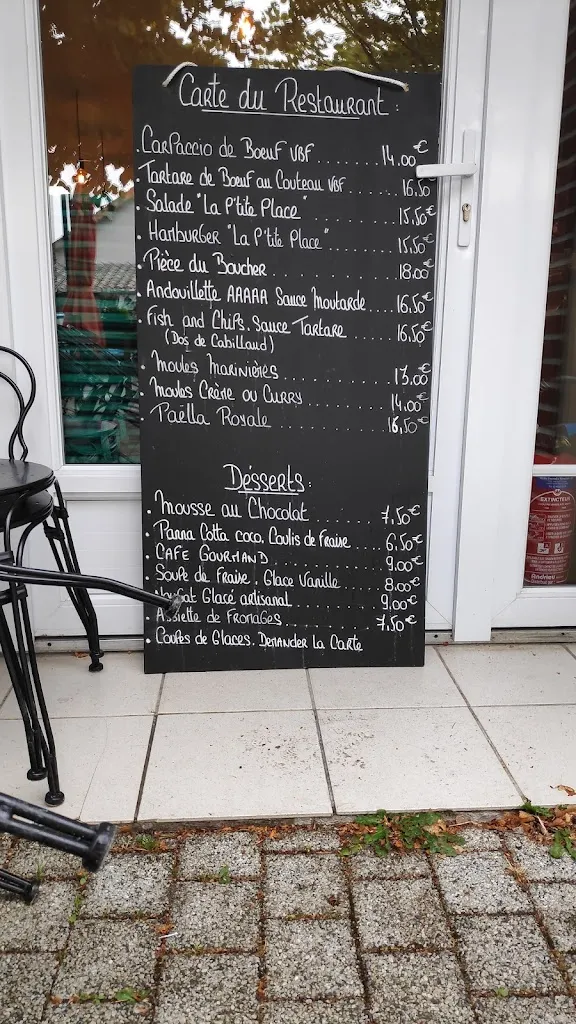 Carte du Restaurant :
. Carpaccio de Boeuf VBF ....... 14.00€
. Tartare de Boeuf au Couteau VBF .. 16.50
. Salade "La P'tite Place" ........ 15,50€
. Hamburger "La P'tite Place" ....... 15,50€
. Pièce du Boucher .......... 18.00€
. Andouillette AAAAA Sauce Moutarde .... 16,50€
. Fish and Chips. Sauce Tartare ..... 16,50€
(Dos de Cabillaud)
. Moules Marinières ........... 13.00€
. Moules Crème ou Curry ........ 14.00€
. Paëlla Royale ............ 16,50€
Désserts :
. Mousse au Chocolat ...... 7,50€
. Panna Cotta coco. Coulis de Fraise .... 6,50€
. CAFE GOURMAND .......... 9.00€
. Soupe de Fraise, Glace Vanille .... 8.00€
. Nougat Glacé artisanal ........ 9,00€
. Assiette de Fromages ........ 7,50€
. Coupes de Glaces. Demander la Carte
EXTINCTEUR
Andrieu